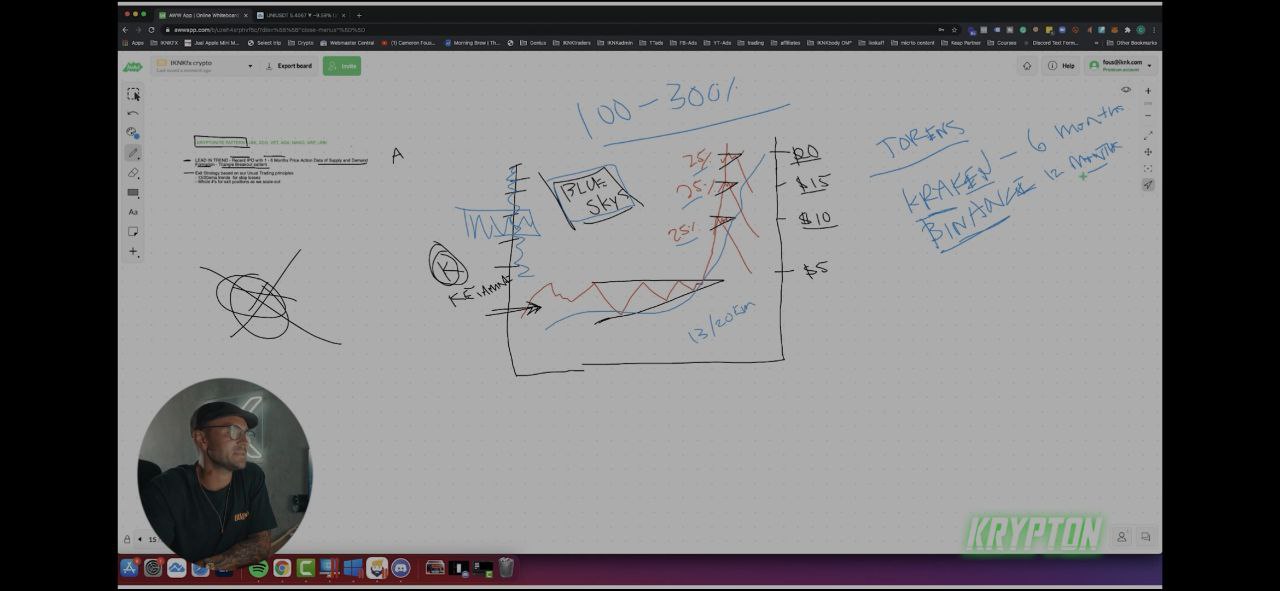 AWW App | Online Whiteboard
UNIUSDT 5.4067 ▼ -9.53%
Apps
IKNKFX
Select trip
Crypto
Webmaster Central
(1) Cameron Fous...
Morning Brew | Th...
Genius
IKNKtraders
IKNKadmin
TTads
FB-Ads
YT-Ads
trading
affiliates
Keap Partner
Courses
Discord Text Form...
Other Bookmarks
IKNKfx crypto
Last saved a moment ago
Export board
Invite
Help
fous@iknk.com
Premium account
LEAD IN TREND - Recent IPO with 1 - 6 Months Price Action Data of Supply and Demand
Formation - Triangle Breakout pattern
Exit Strategy based on our Usual Trading principles
- 13/20ema trends for stop losses
- Whole #'s for exit positions as we scale out
A
100-300%
BLUE
SKYS
25%
25%
25%
$15
$10
$5
K
13/20
TOKENS
KRAKEN - 6 months
BINANCE 12 months
Aa
15
KRYPTON